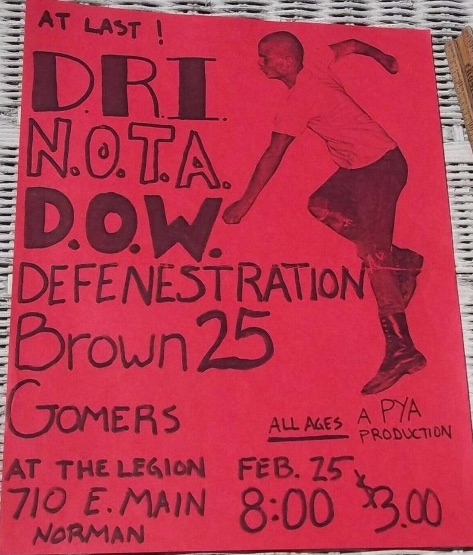 AT LAST!
D.R.I.
N.O.T.A.
D.O.W.
DEFENESTRATION
Brown 25
GOMERS
ALL AGES
A PYA
PRODUCTION
AT THE LEGION
710 E. MAIN
NORMAN
FEB. 25
8:00
$3.00